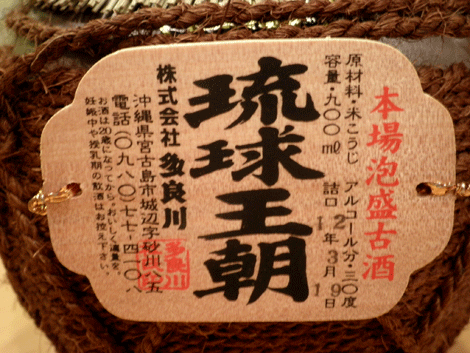 本場泡盛古酒
原材料・米こうじ アルコール分・三〇度
容量・九〇〇ml 詰口 12年3月9日
琉球王朝
株式会社 多良川
沖縄県宮古島市城辺字砂川八五
多良川
電話(〇九八〇)七七-四一〇八
お酒は20歳になってから。おいしく適量を。
妊娠中や授乳期の飲酒はお控え下さい。